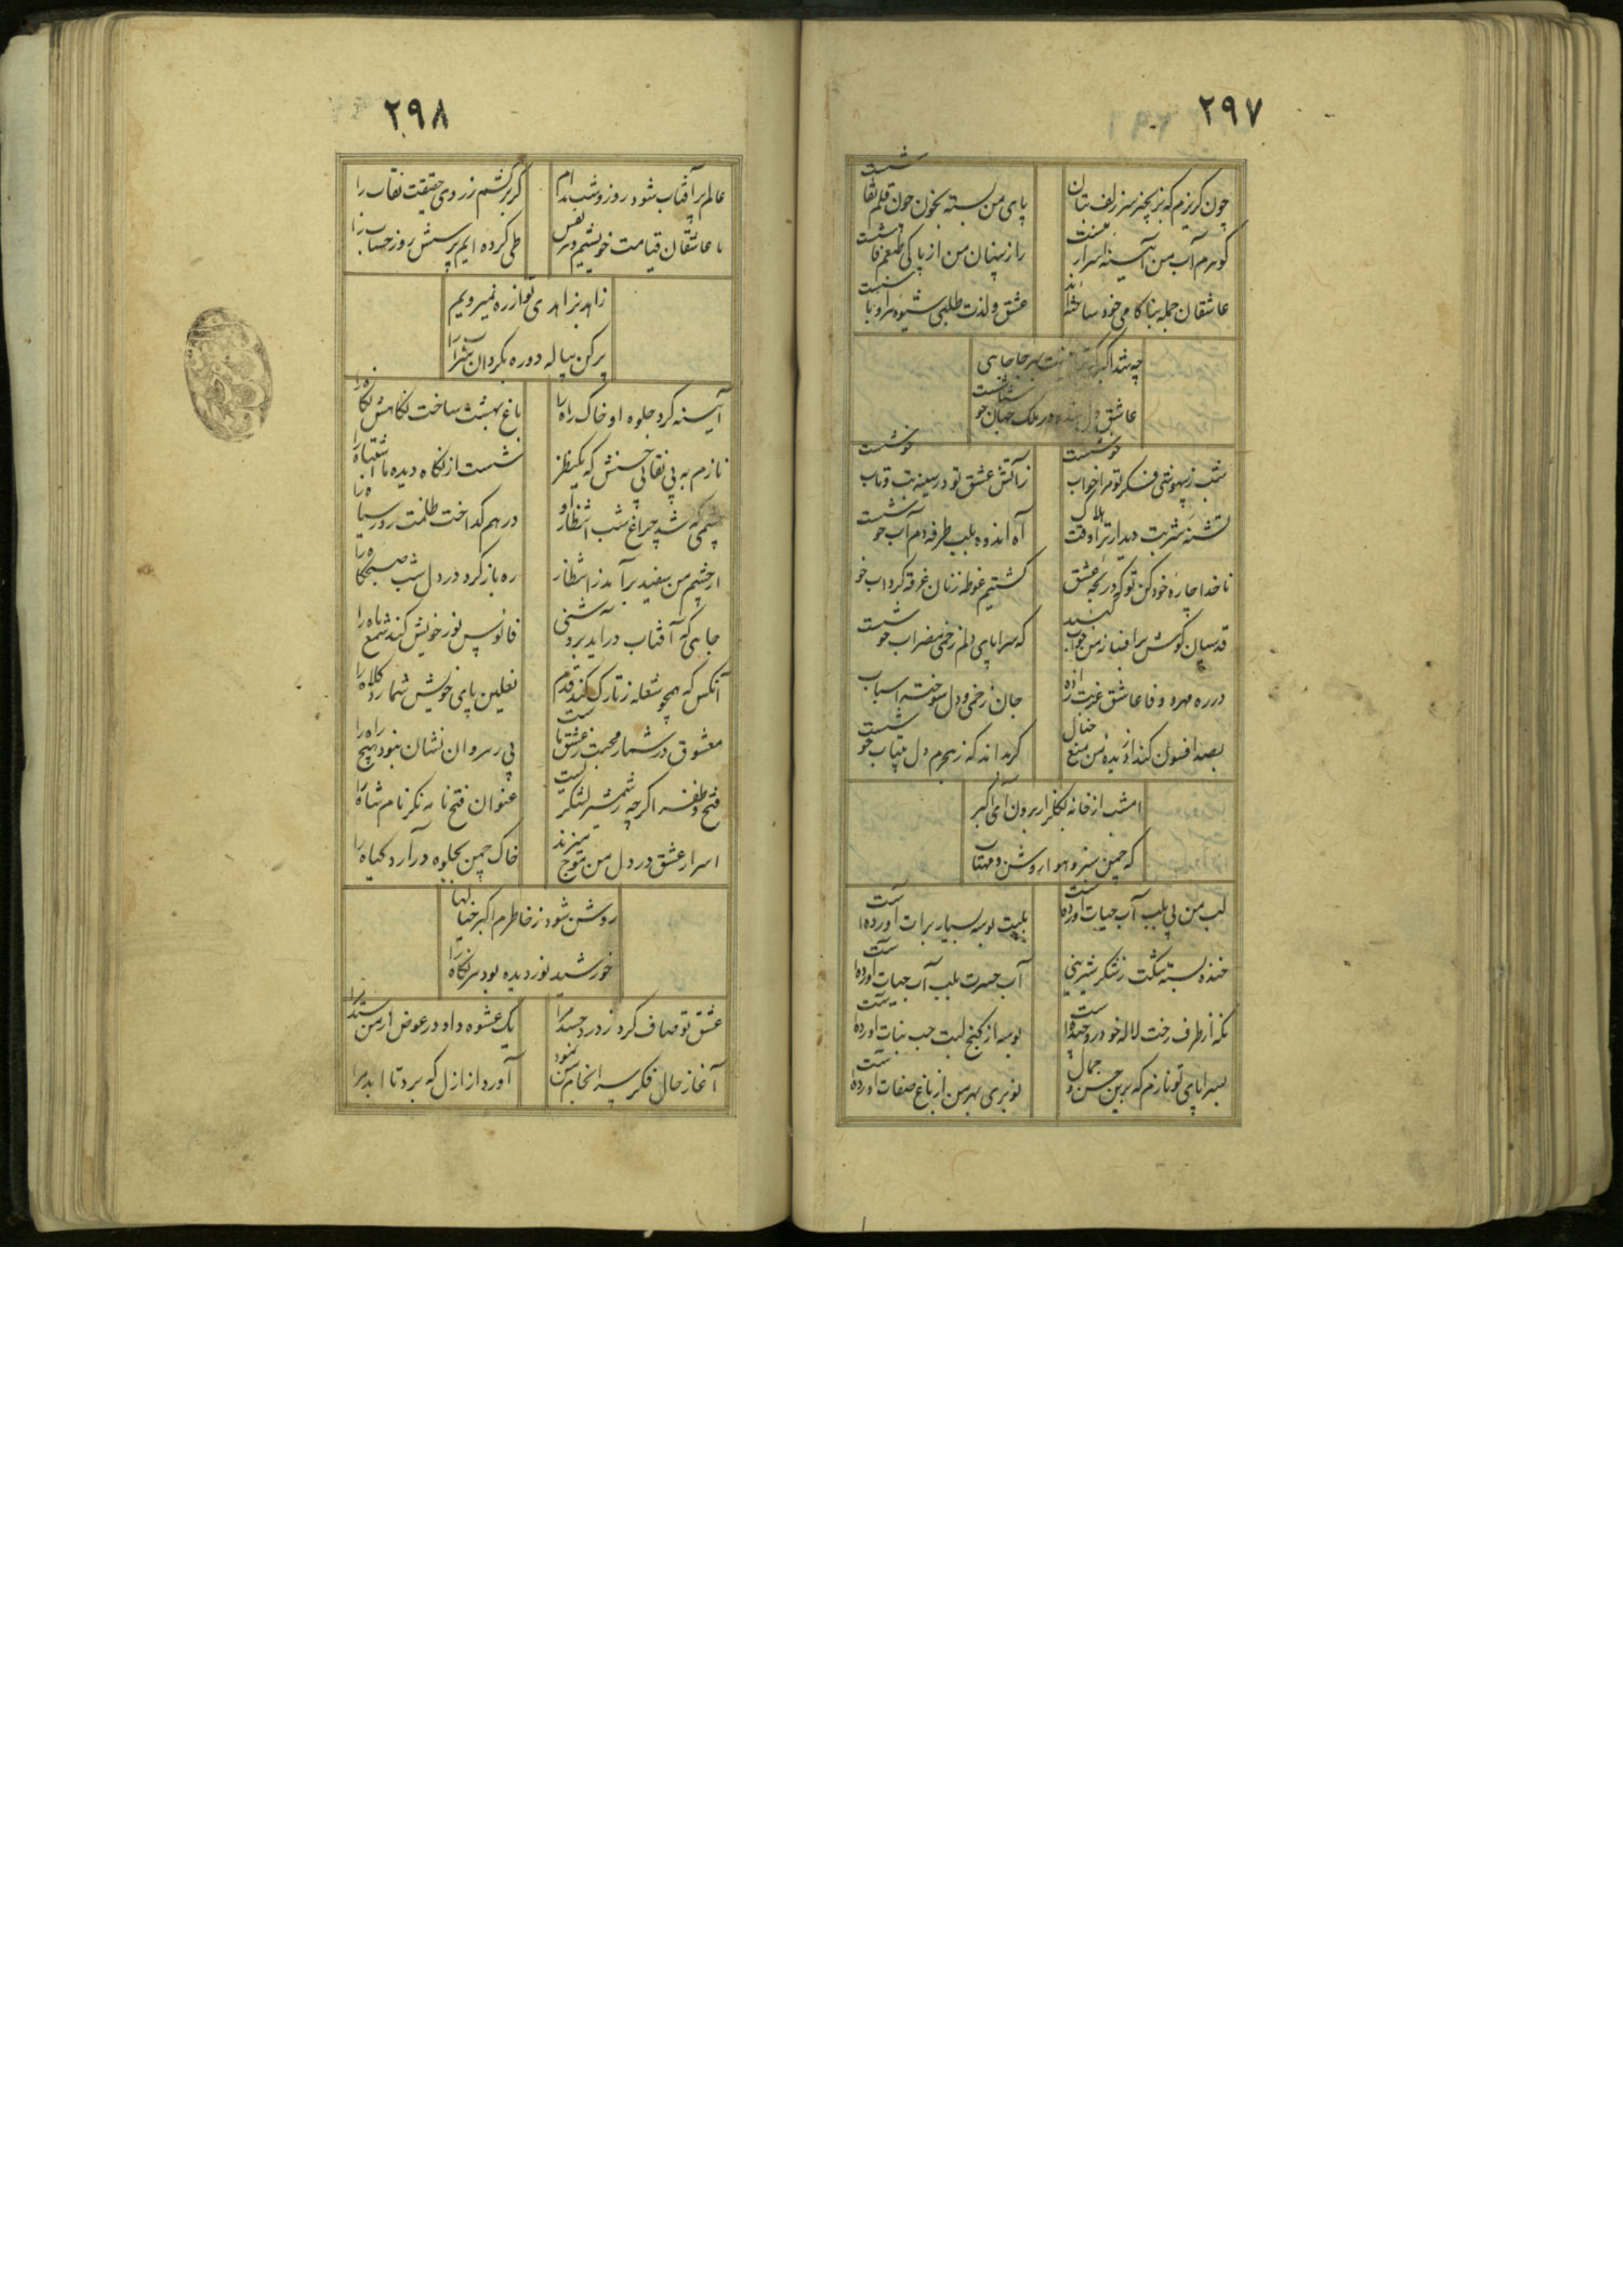 ۲۹۷
چون گریزم که بزنجیر سر زلف بتان
پای من بسته بخون چون قلم نقاشست
گوهرم آب من آئینه اسرار منست
راز پنهان من از پاکی طبعم فاشست
عاشقان جمله بناکامی خود ساخته‌اند
عشق و لذت طلبی شیوه
چه شد اکبر بهر جا جاهی
عاشق در ملک جهان
شب ز بیهوشی فکر تو مرا خواب خوشست
ز آتش عشق تو در سینه تب و تاب خوشست
تشنه شربت دیدار ترا وقت هلاک
آه اندوه بلب طرفه دم آب خوشست
ناخدا چاره خود کن تو که در لجه عشق
کشتیم غوطه زنان غرقه گرداب خو
قدسیان گوش بر افسانه من خواب کنید
که سراپای دلم زخمی مضراب خوشست
در ره مهر و وفا عاشق غربت زده را
جان زخمی و دل سوخته اسباب
بصد افسون کند از دیده من منع خیال
گر بداند که ز هجرم دل بیتاب خوشست
امشب از خانه بگلزار برون آی اکبر
که چمن سبز و هوا روشن و مهتاب
لب من پی بلب آب حیات آورده است
بلبت بوسه بسیار برات آورده است
خنده بسته شکست ز شکر شیرینی
آب حسرت بلب آب حیات آورده است
نگه از طرف رخت لاله خودرو چیده است
بوسه از کنج لبت حب نبات آورده است
بسراپای تو نازم که برین حسن و جمال
نوبری بهر من از باغ صفات آورده است
۲۹۸
عالم پر آفتاب شود روز و شب مدام
گر برکشم ز روی حقیقت نقاب را
ما عاشقان قیامت خویشیم هر نفس
طی کرده ایم پرسش روز حساب را
زاهد بزاهدی تو از ره نمیرویم
پر کن پیاله دوره بگردان شراب را
آئینه کرد جلوه او خاک راه را
باغ بهشت ساخت نگاهش نگاه را
نازم به بی نقابی حسنش که یکنظر
شست از نگاه دیده ما اشتباه را
چشمی که شد چراغ شب انتظار او
در هم گداخت ظلمت روز سیاه را
از چشم من سفید برآمد ز انتظار
ره باز کرد در دل شب صبحگاه را
جاهی که آفتاب درآید بروشنی
فانوس نور خویش کند شمع ماه را
آنکس که همچو شعله ز تارک کند قدم
نعلین پای خویش شمارد کلاه را
معشوق در شمار محبت ز عشق ماست
بی رهروان نشان نبود هیچ راه را
فتح و ظفر اگرچه ز شمشیر لشکر است
عنوان فتح نامه نگر نام شاه را
اسرار عشق در دل من موج میزند
خاک چمن بجلوه در آرد گیاه را
روشن شود ز خاطرم اکبر خیالها
خورشید نور دیده بود سر نگاه را
عشق تو صاف کرد ز درد حسد مرا
یک عشوه داد و در عوض از من ستد مرا
آغاز حال فکر سرانجام من نمود
آورد از ازل که برد تا ابد مرا